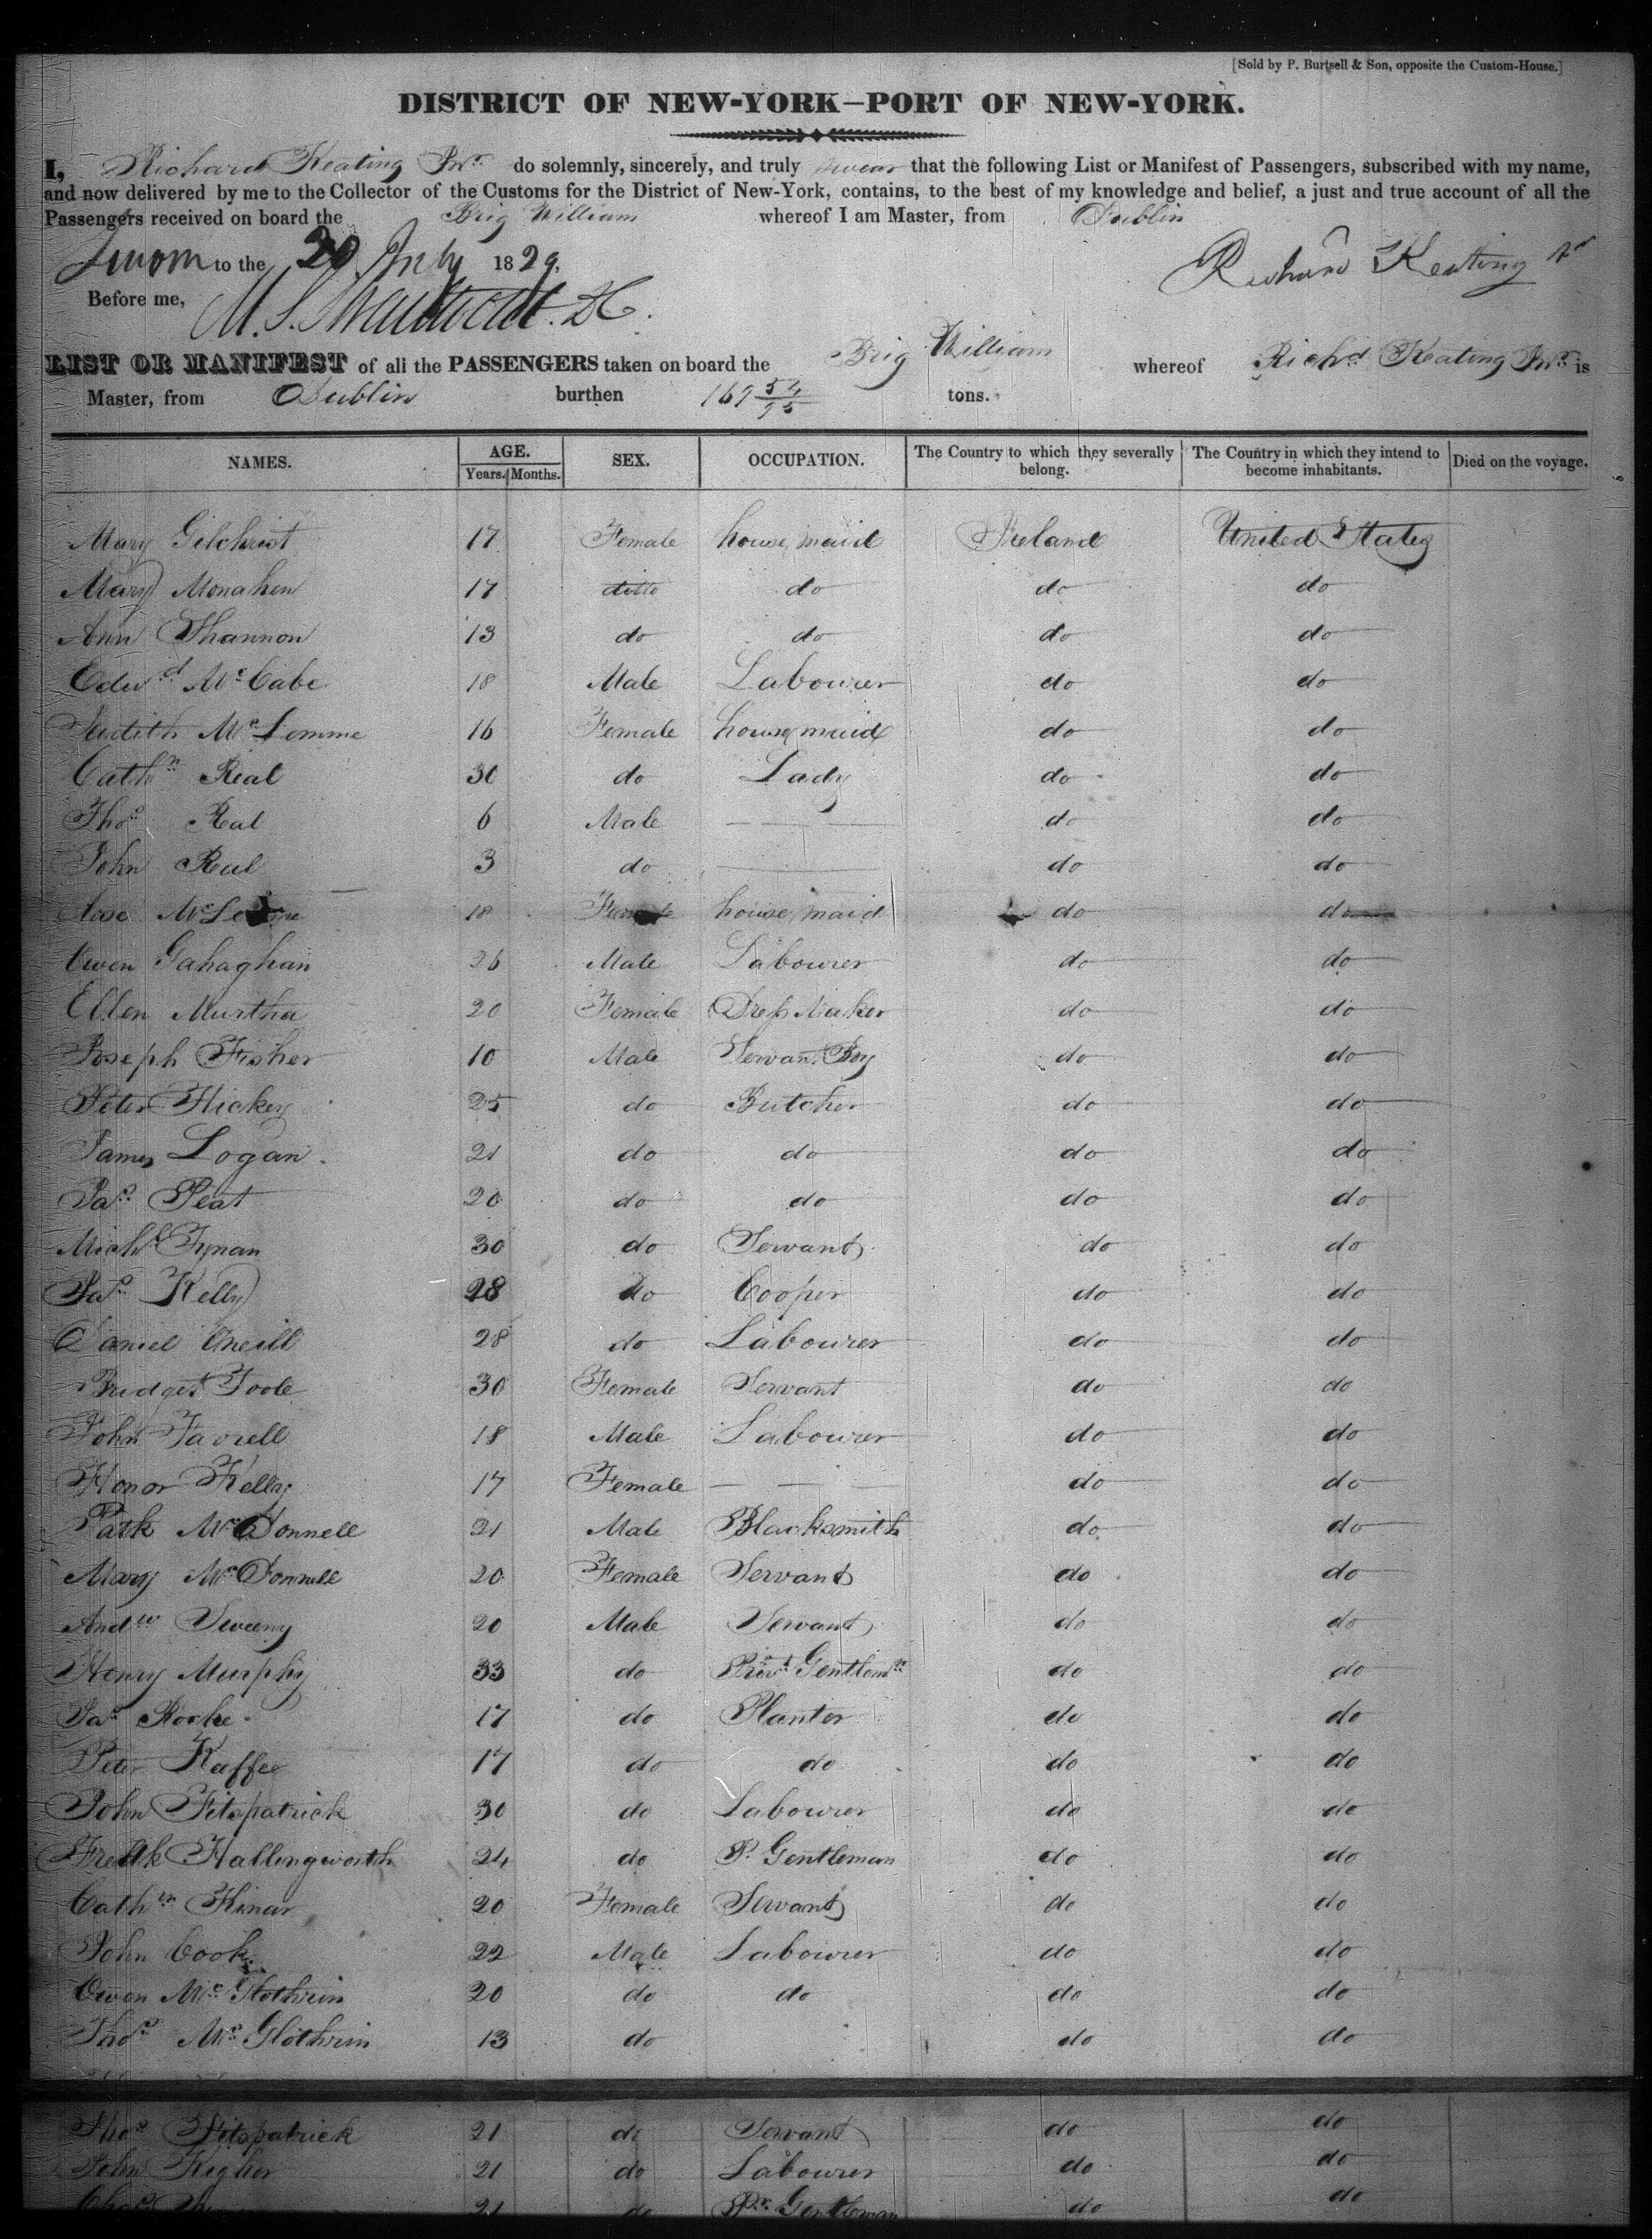 [Sold by P. Burtsell & Son, opposite the Custom-House.]
DISTRICT OF NEW-YORK—PORT OF NEW-YORK.
I, Richard Keating Jnr. do solemnly, sincerely, and truly swear that the following List or Manifest of Passengers, subscribed with my name,
and now delivered by me to the Collector of the Customs for the District of New-York, contains, to the best of my knowledge and belief, a just and true account of all the
Passengers received on board the Brig William whereof I am Master, from Dublin
Sworn to the 20 July 1829. Richard Keating Jr
Before me,
LIST OR MANIFEST of all the PASSENGERS taken on board the Brig William whereof Richd Keating Jnr. is
Master, from Dublin burthen 169 54/95 tons.
NAMES. AGE. Years. Months. SEX. OCCUPATION. The Country to which they severally belong. The Country in which they intend to become inhabitants. Died on the voyage.
Mary Gilchrist 17 Female house maid Ireland United States
Mary Monahen 17 ditto do do do
Ann Shannon 13 do do do do
Edwd McCabe 18 Male Labourer do do
Judith McLemme 16 Female house maid do do
Cathn Real 30 do Lady do do
Thos Real 6 Male — — — do do
John Real 3 do — do do
Rose 18 Female house maid do do
Owen Gahaghan 26 Male Labourer do do
Ellen Murtha 20 Female Dress Maker do do
Joseph Fisher 10 Male Servant Boy do do
Peter Hickey 25 do Butcher do do
James Logan. 21 do do do do
Jas. Peat 20 do do do do
Michl Tynan 30 do Servant do do
Jas. Kelly 28 do Cooper do do
Daniel Oneill 28 do Labourer do do
Bridget Toole 30 Female Servant do do
John Farrell 18 Male Labourer do do
Honor Kelly 17 Female — — — do do
Patk McDonnell 21 Male Blacksmith do do
Mary McDonnell 20 Female Servant do do
Andw Sweeny 20 Male Servant do do
Henry Murphy 33 do Privt Gentlemn do do
Jas Roche 17 do Planter do do
Peter Kaffee 17 do do do do
John Fitspatrick 30 do Labourer do do
Fredk Hallengworth 24 do P. Gentleman do do
Cathn 20 Female Servant do do
John Cook 22 Male Labourer do do
Owen McGlothrin 20 do do do do
Thos McGlothrin 13 do do do
Thos Fitspatrick 21 do Servant do do
John 21 do Labourer do do
Chas 21 do Pr. Gentleman do do